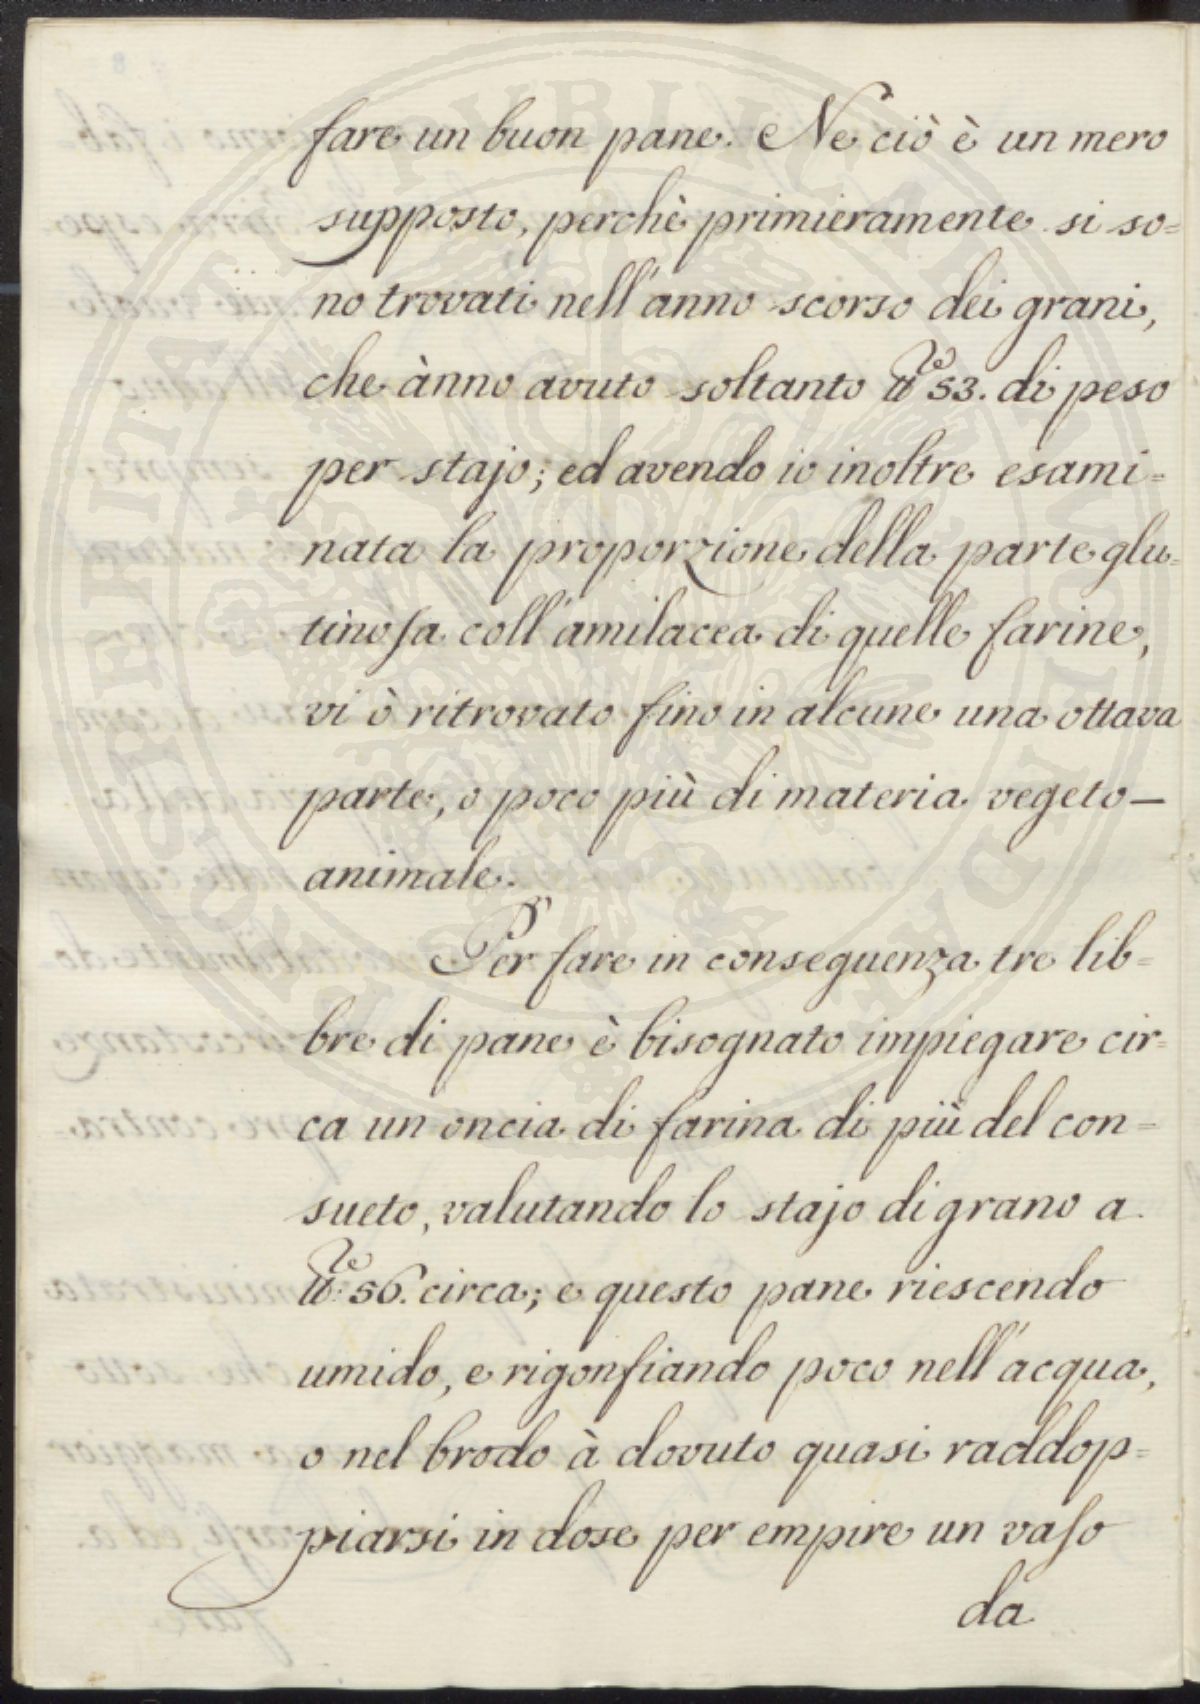 fare un buon pane. Ne ciò è un mero
supposto, perchè primieramente si so=
no trovati nell'anno scorso dei grani,
che ànno avuto soltanto ℔e 53. di peso
per stajo; ed avendo io inoltre esami=
nata la proporzione della parte glu=
tinosa coll'amilacea di quelle farine,
vi ò ritrovato fino in alcune una ottava
parte, o poco più di materia vegeto—
animale.
Per fare in conseguenza tre lib=
bre di pane è bisognato impiegare cir=
ca un oncia di farina di più del con=
sueto, valutando lo stajo di grano a
℔e 56. circa; e questo pane riescendo
umido, e rigonfiando poco nell'acqua,
o nel brodo à dovuto quasi raddop=
piarsi in dose per empire un vaso
da
PROSPERITATI PUBLICAE